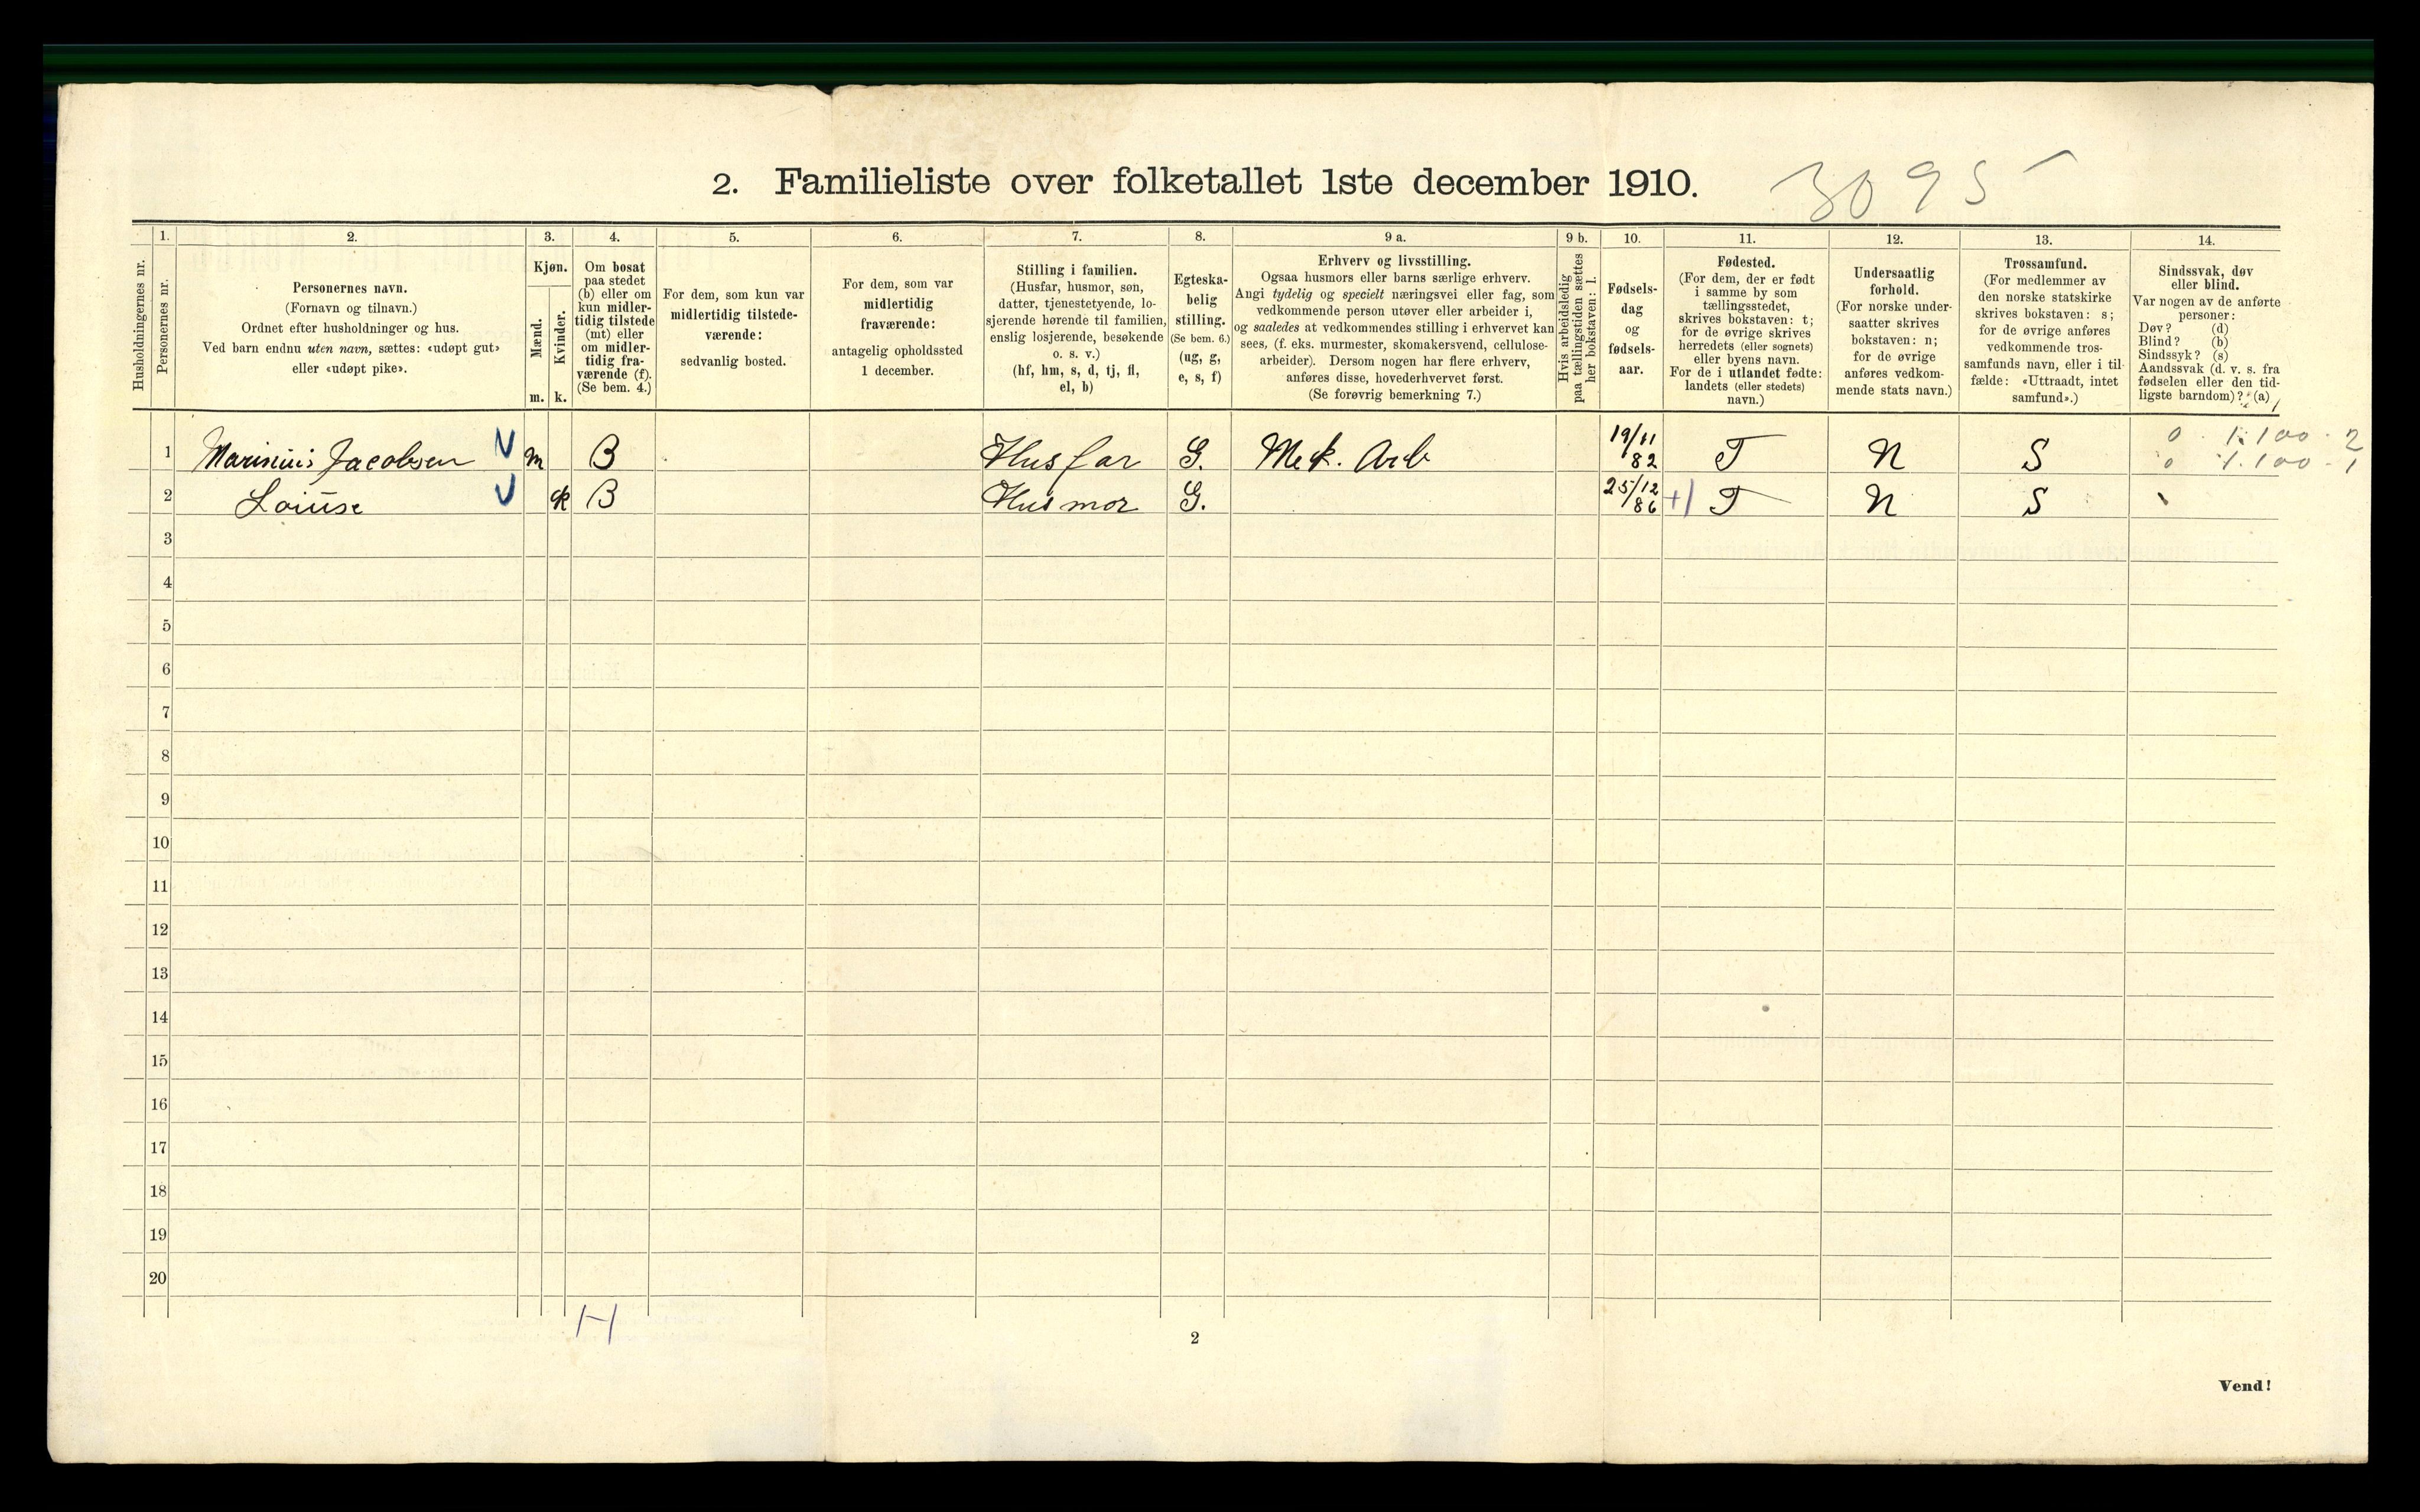 2. Familieliste over folketallet 1ste december 1910.
3095
1.
2.
3.
4.
5.
6.
7.
8.
9 a.
9 b.
10.
11.
12.
13.
14.
Husholdningernes nr.
Personernes nr.
Personernes navn.
(Fornavn og tilnavn.)
Ordnet efter husholdninger og hus.
Ved barn endnu uten navn, sættes: «udøpt gut»
eller «udøpt pike».
Kjøn.
Mænd.
Kvinder.
m.
k.
Om bosat
paa stedet
(b) eller om
kun midler-
tidig tilstede
(mt) eller
om midler-
tidig fra-
værende (f).
(Se bem. 4.)
For dem, som kun var
midlertidig tilstede-
værende:
sedvanlig bosted.
For dem, som var
midlertidig
fraværende:
antagelig opholdssted
1 december.
Stilling i familien.
(Husfar, husmor, søn,
datter, tjenestetyende, lo-
sjerende hørende til familien,
enslig losjerende, besøkende
o. s. v.)
(hf, hm, s, d, tj, fl,
el, b)
Egteska-
belig
stilling.
(Se bem. 6.)
(ug, g,
e, s, f)
Erhverv og livsstilling.
Ogsaa husmors eller barns særlige erhverv.
Angi tydelig og specielt næringsvei eller fag, som
vedkommende person utøver eller arbeider i,
og saaledes at vedkommendes stilling i erhvervet kan
sees, (f. eks. murmester, skomakersvend, cellulose-
arbeider). Dersom nogen har flere erhverv,
anføres disse, hovederhvervet først.
(Se forøvrig bemerkning 7.)
Hvis arbeidsledig
paa tællingstiden sættes
her bokstaven: l.
Fødsels-
dag
og
fødsels-
aar.
Fødested.
(For dem, der er født
i samme by som
tællingsstedet,
skrives bokstaven: t;
for de øvrige skrives
herredets (eller sognets)
eller byens navn.
For de i utlandet fødte:
landets (eller stedets)
navn.)
Undersaatlig
forhold.
(For norske under-
saatter skrives
bokstaven: n;
for de øvrige
anføres vedkom-
mende stats navn.)
Trossamfund.
(For medlemmer av
den norske statskirke
skrives bokstaven: s;
for de øvrige anføres
vedkommende tros-
samfunds navn, eller i til-
fælde: «Uttraadt, intet
samfund».)
Sindssvak, døv
eller blind.
Var nogen av de anførte
personer:
Døv? (d)
Blind? (b)
Sindssyk? (s)
Aandssvak (d. v. s. fra
fødselen eller den tid-
ligste barndom)? (a)
1 Marinius Jacobsen m B Husfar G. Mek. Arb 19/11 82 T N S 0 1.100.2
0 1.100-1
2 Louise k B Husmor G. 25/12 86 +1 T N S
3
4
5
6
7
8
9
10
11
12
13
14
15
16
17
18
19
20
H
2
Vend!